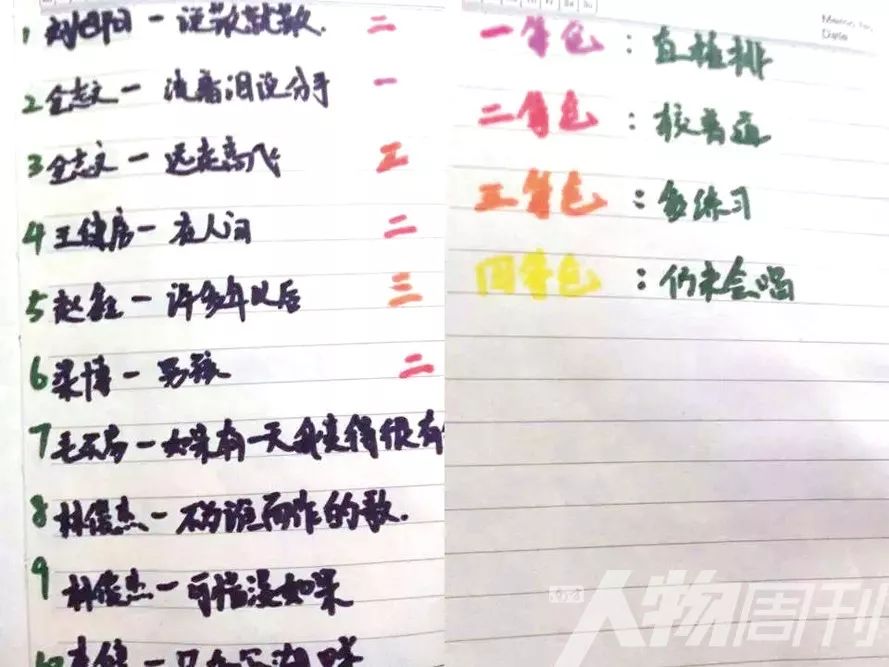 1 一 说散就散. 二
2 金志文一 流着泪说分手 一
3 金志文一 远走高飞 三
4 王健房一 在人间 二
5 赵鑫一 许多年以后 三
6 梁博一 男孩 二
7 毛不易一如果有一天我变得很有
8 林俊杰一不为谁而作的歌.
9 林俊杰一可惜没如果
10
一角色：
二角色：较普通
三角色：多练习
四角色：仍未会唱
Memo No.
Date
人物周刊